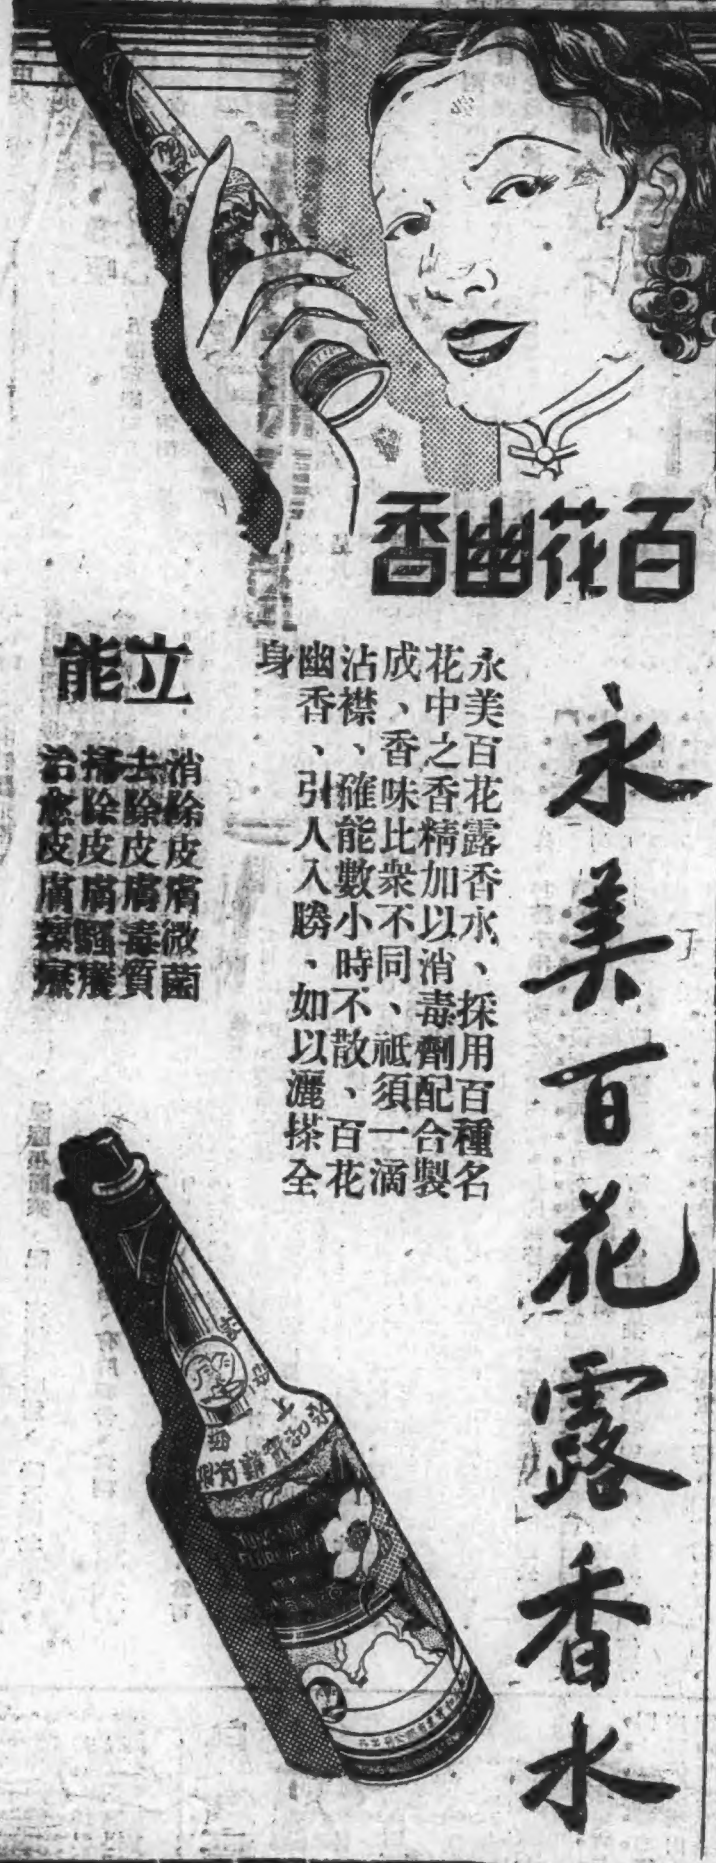 百花幽香
永美百花露香水
永美百花露香水、採用百種名
花中之香精加以消毒劑配合製
成、香味比衆不同、祗須一滴
沾襟、確能數小時不散、百花
幽香、引人入勝、如以灑搽全
身
立能
消除皮膚微菌
去除皮膚毒質
掃除皮膚騷癢
治愈皮膚瘰癧